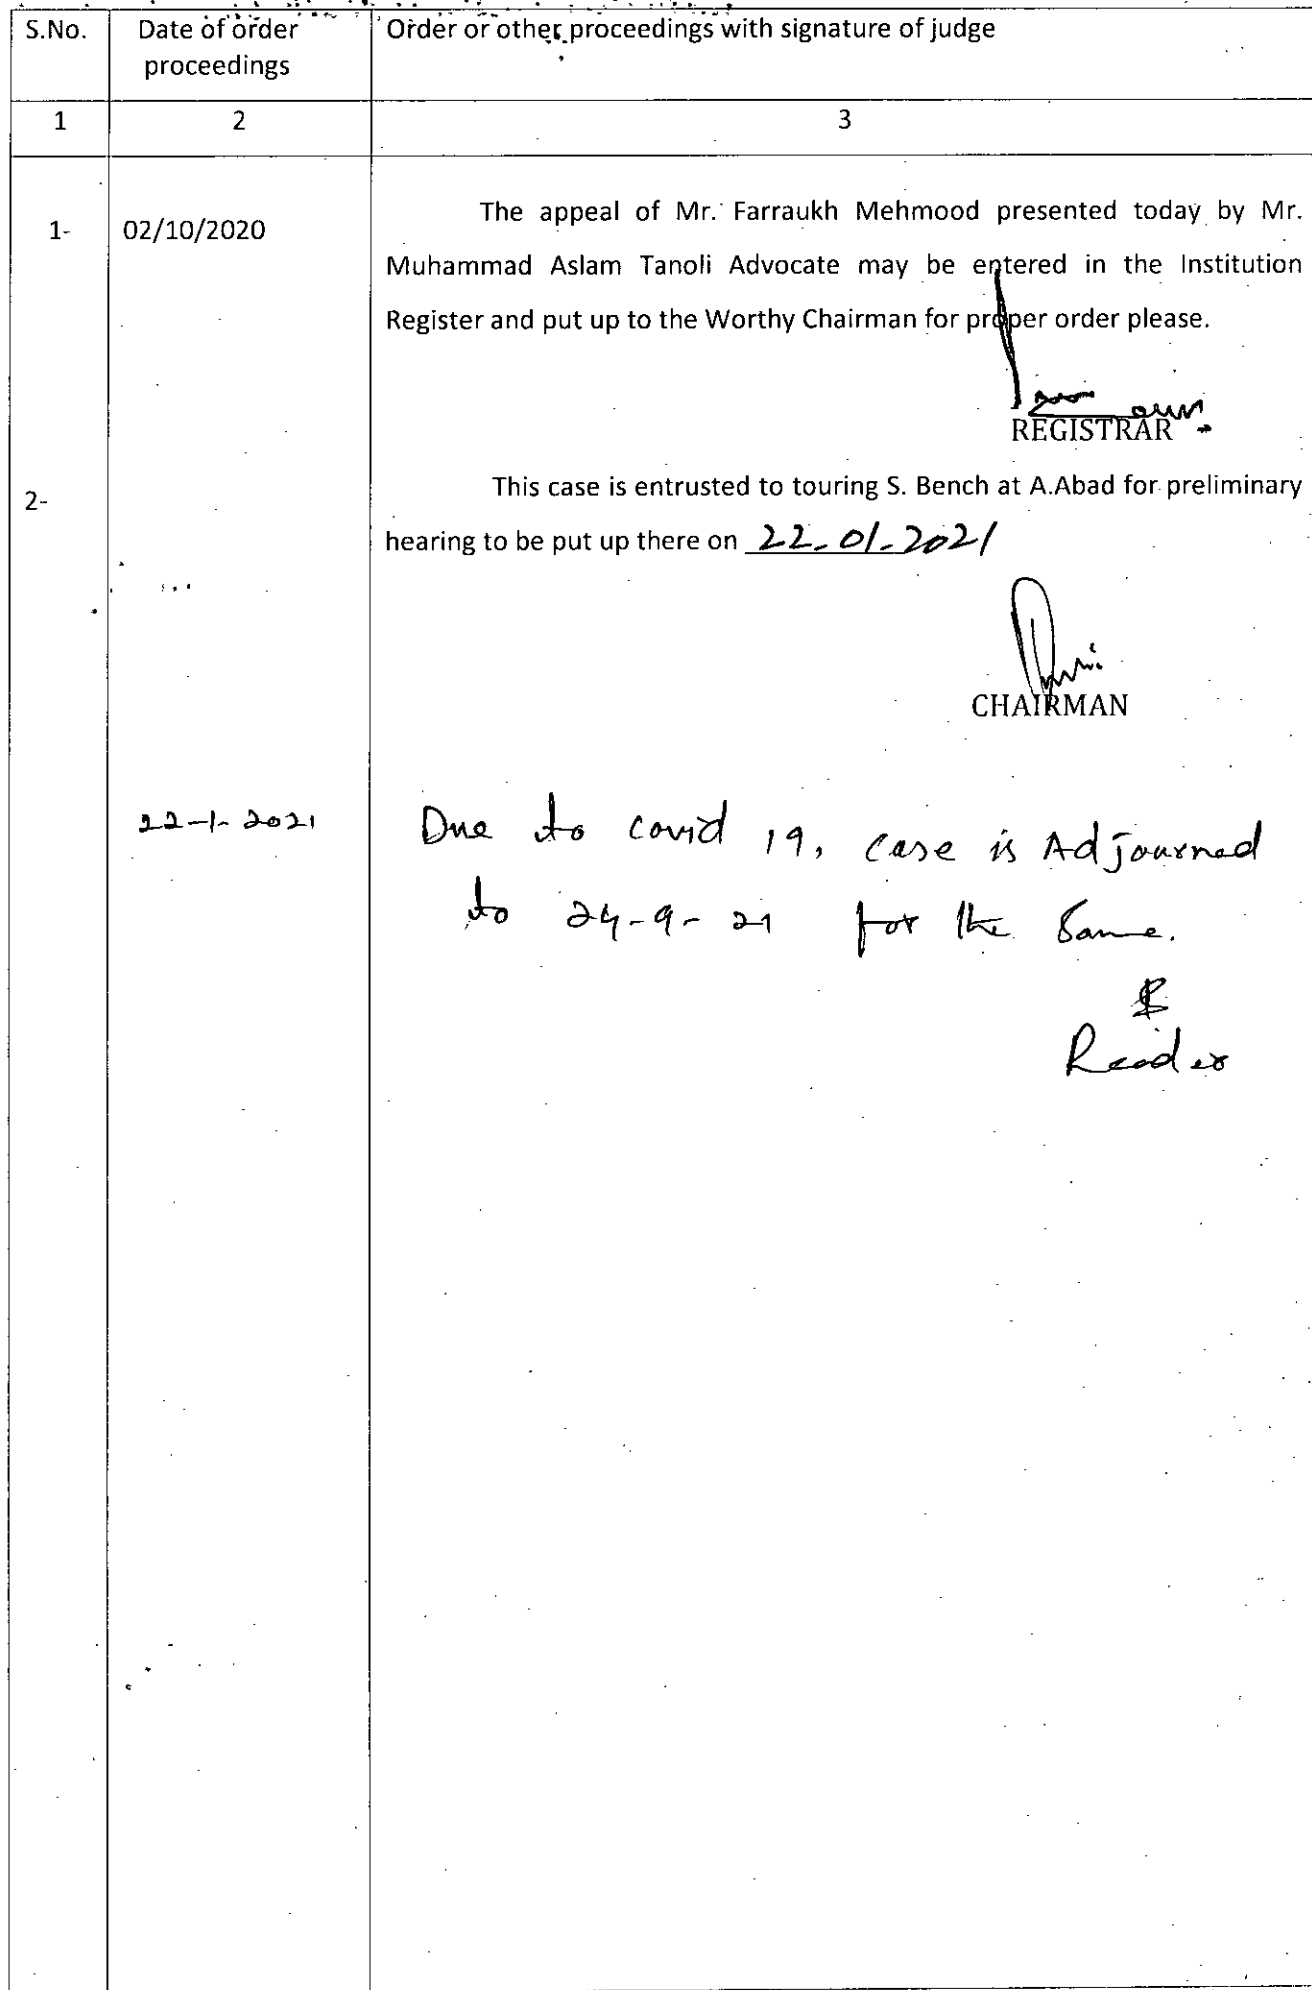 S.No. Date of order Order or other proceedings with signature of judge
proceedings
1 2 3
The appeal of Mr. Farraukh Mehmood presented today by Mr.
1- 02/10/2020
Muhammad Aslam Tanoli Advocate may be entered in the Institution
Register and put up to the Worthy Chairman for proper order please.
REGISTRAR
This case is entrusted to touring S. Bench at A.Abad for preliminary
2-
hearing to be put up there on 22-01-2021
CHAIRMAN
22-1-2021 Due to covid 19, case is Adjourned
to 24-9-21 for the Same.
Reader